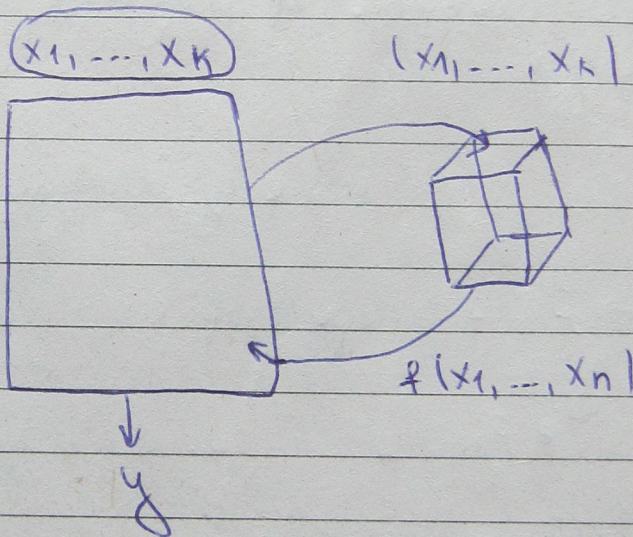 x1, ..., xk
(x1, ..., xn)
f(x1, ..., xn)
y